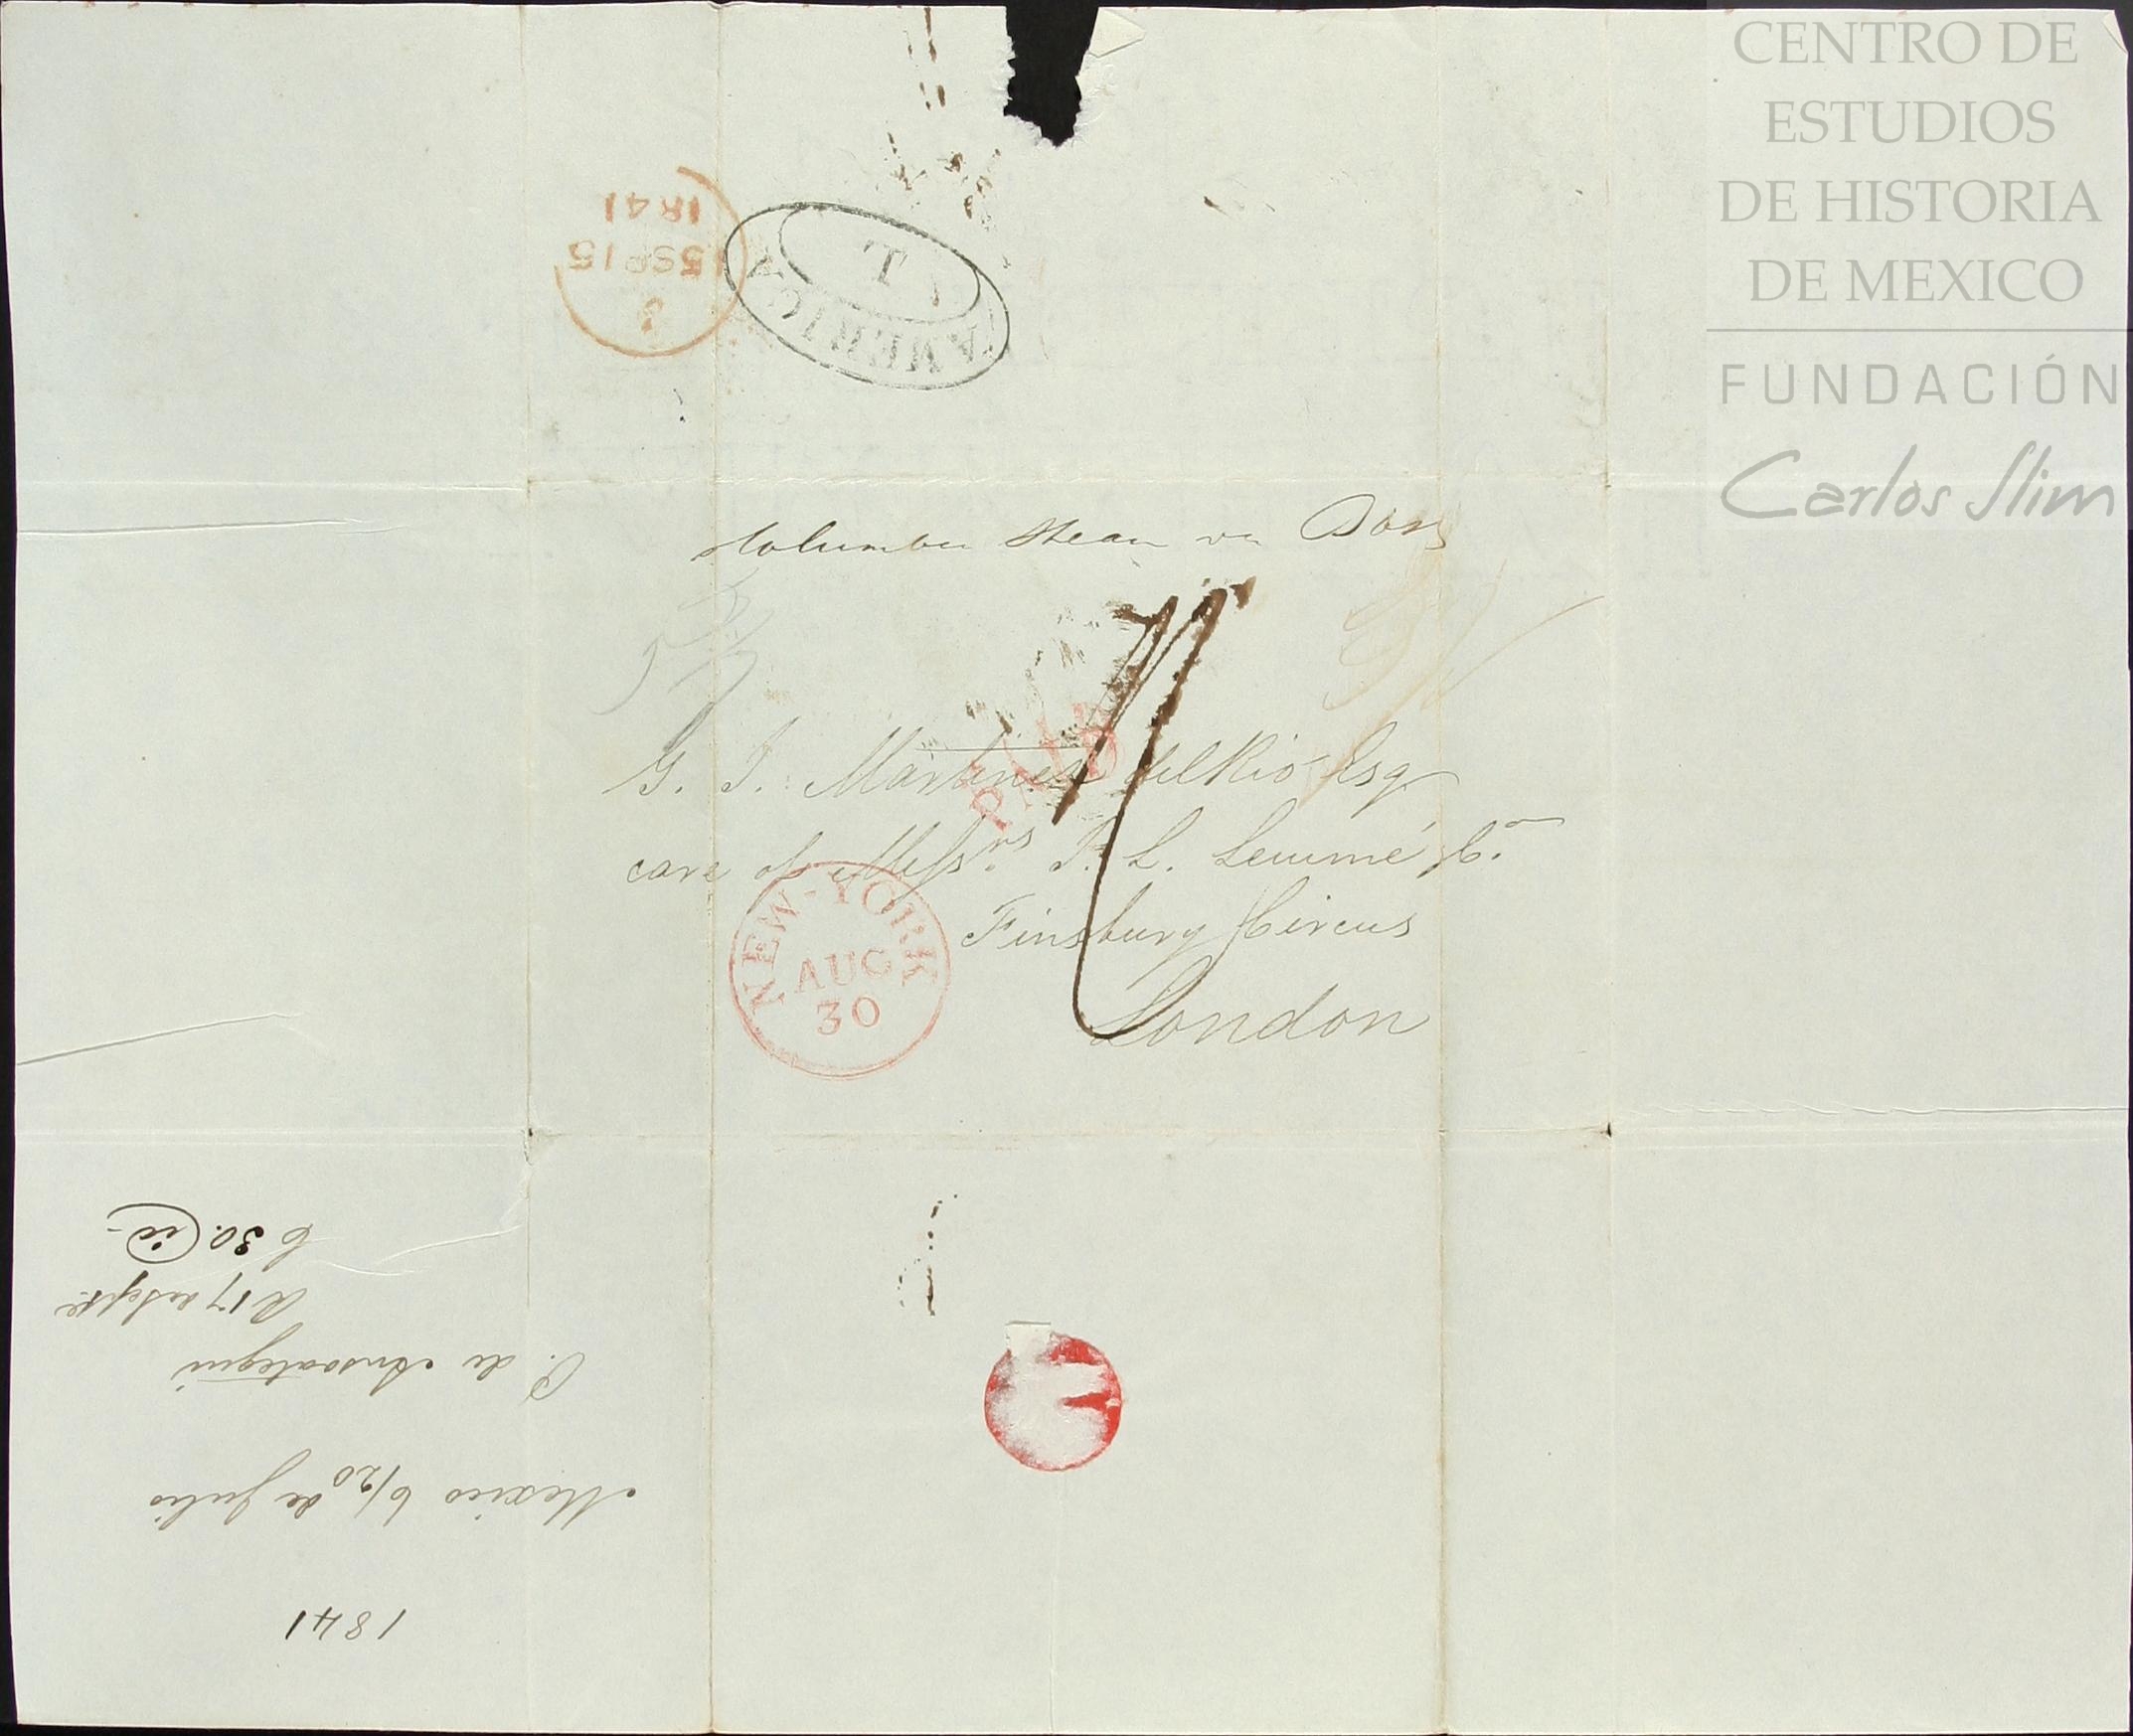 CENTRO DE
ESTUDIOS
DE HISTORIA
DE MEXICO
FUNDACIÓN
Carlos Slim
1841
AMERICA
L
Columbia Steam via Bos
G. J. Martinez del Rio Esq
PAID
care of Messrs F. L. Lemmé Co.
Finsbury Circus
London
NEW-YORK
AUG
30
1841
Mexico 6/20 de Julio
P. de Ansoategui
R 17 de Sept
C 30.